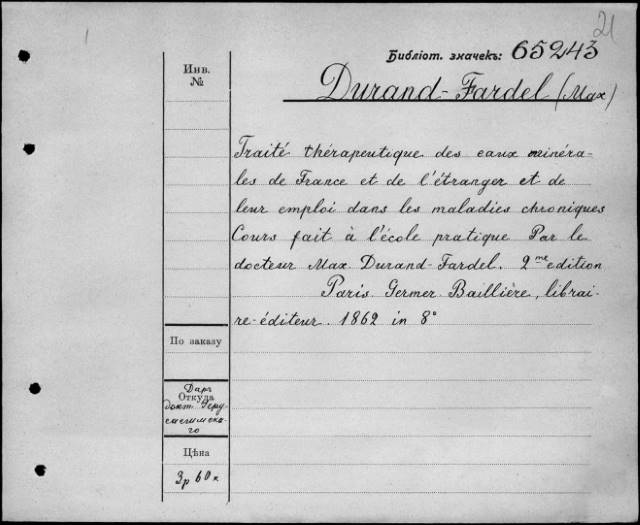 21
1
Библіот. значекъ: 65243
Инв.
№
Durand-Fardel (Max)
Traité thérapeutique des eaux minéra-
les de France et de l'étranger et de
leur emploi dans les maladies chroniques
Cours fait à l'école pratique Par le
docteur Max Durand-Fardel. 2me edition
Paris Germer Baillière, librai-
re-éditeur. 1862 in 8°
По заказу
Даръ
Откуда
докт. Іеру-
салимска-
го
Цѣна
3 р 60 к